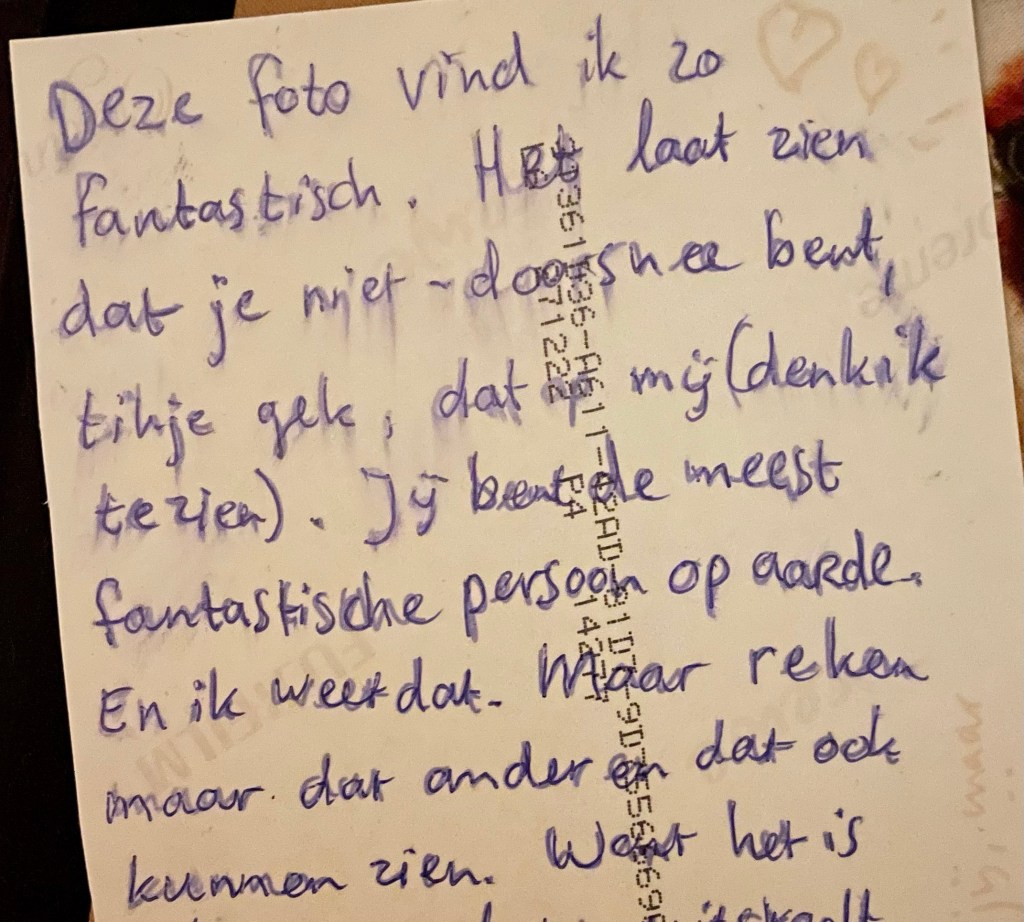 Deze foto vind ik zo
fantastisch. Het laat zien
dat je niet-doorsnee bent,
tikje gek, dat op mij (denk ik
te zien). Jij bent de meest
fantastische persoon op aarde.
En ik weet dat. Maar reken
maar dat anderen dat ook
kunnen zien. Want het is
uitstraalt